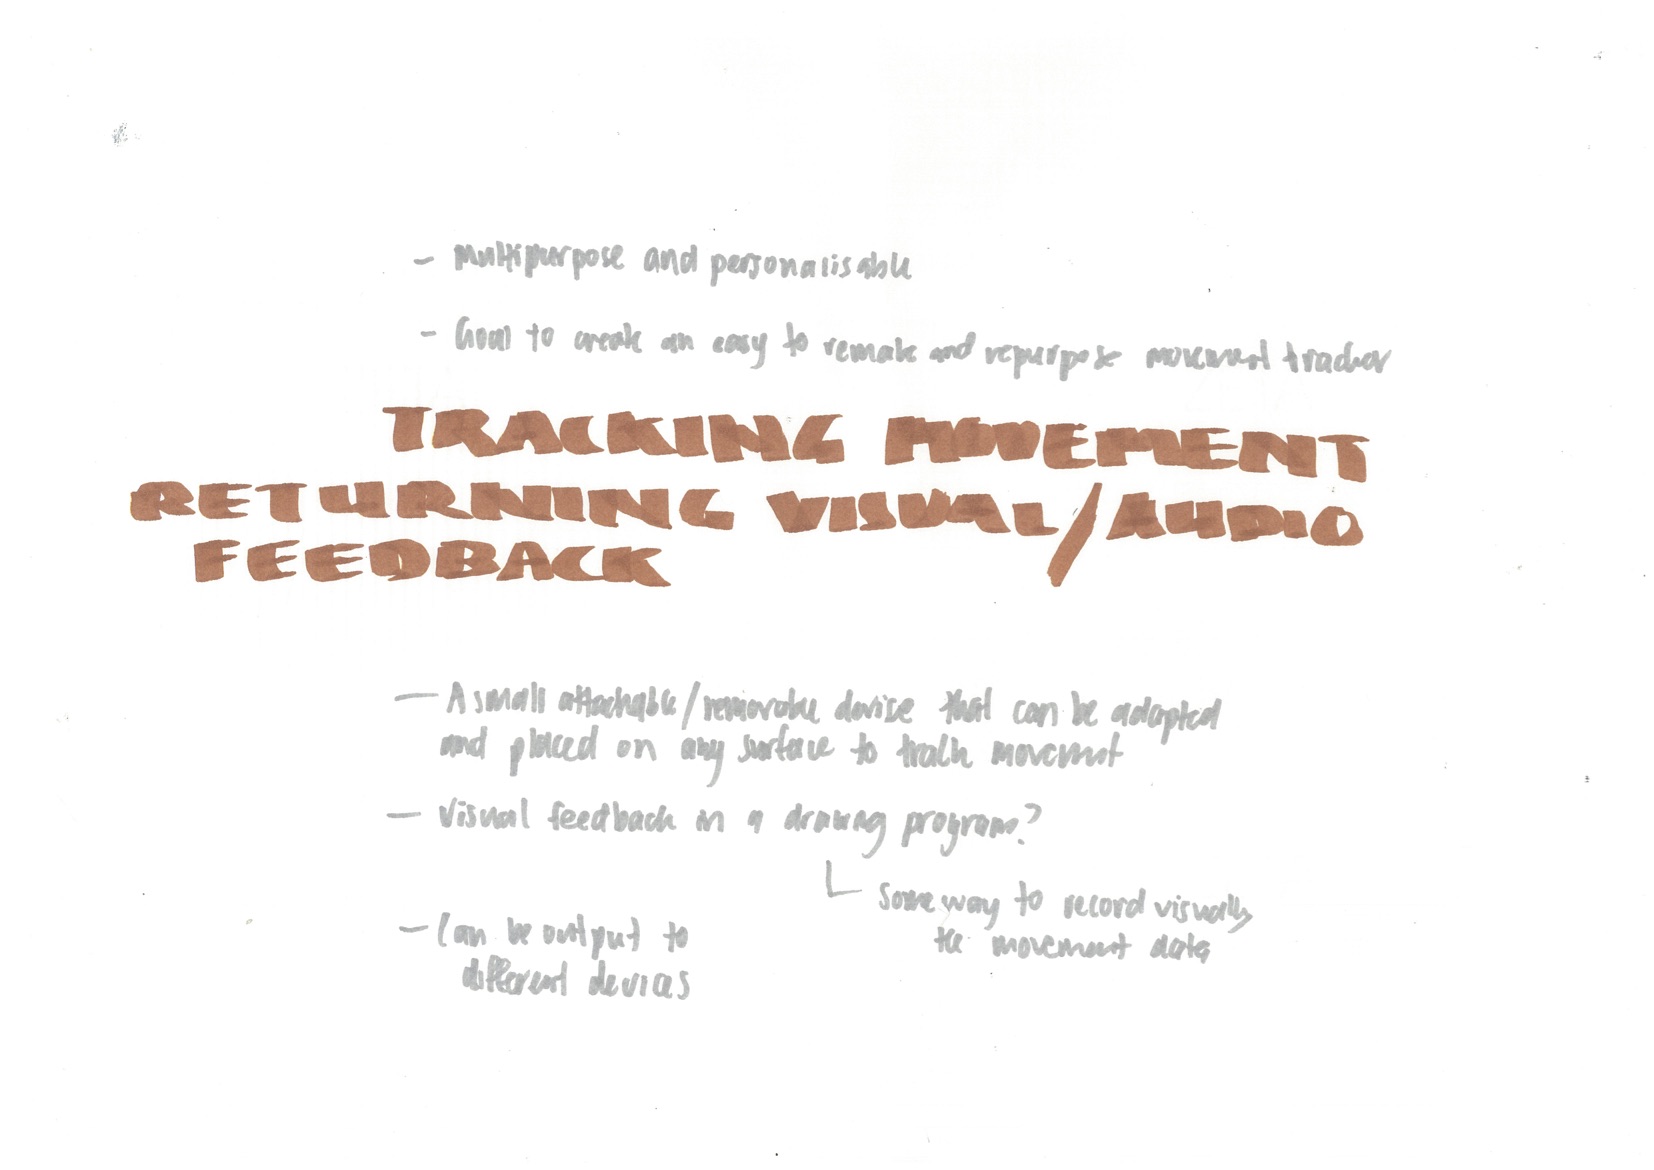 - Multipurpose and personalisable
- Goal to create an easy to remake and repurpose movement tracker
TRACKING MOVEMENT
RETURNING VISUAL/AUDIO
FEEDBACK
- A small attachable/removable device that can be adapted
and placed on any surface to track movement
- Visual feedback in a drawing program?
Some way to record visually
the movement data
- Can be output to
different devices